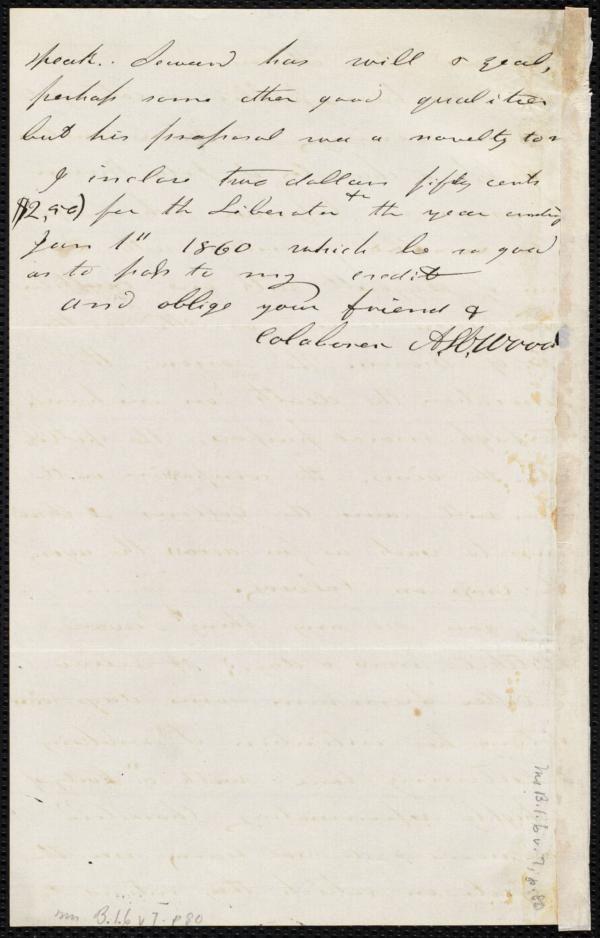 speak.. Seward has will & zeal,
perhaps some other good qualities
but his proposal was a novelty to
I inclose two dollars fifty cents
$2,50) for the Liberator the year ending
Jan 1" 1860 which be so good
as to pass to my credit
and oblige your friend &
Colaborer A. Wood
Ms B.1.6 v.7, p.80
Ms B.1.6 v 7. p 80